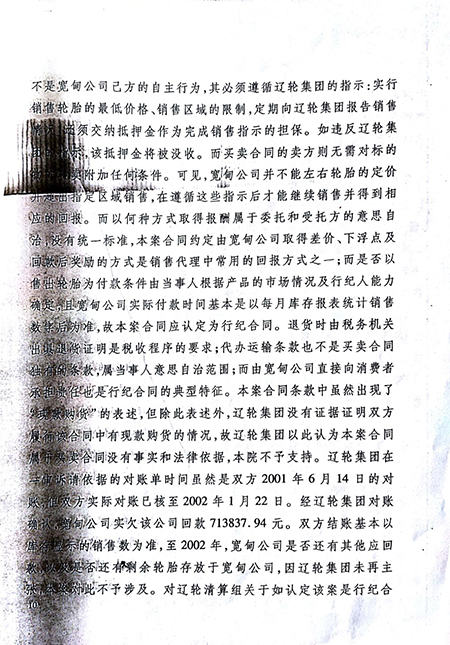 不是宽甸公司己方的自主行为,其必须遵循辽轮集团的指示:实行
销售轮胎的最低价格、销售区域的限制,定期向辽轮集团报告销售
须交纳抵押金作为完成销售指示的担保。如违反辽轮集
示,该抵押金将被没收。而买卖合同的卖方则无需对标的
附加任何条件。可见,宽甸公司并不能左右轮胎的定价
指定区域销售,在遵循这些指示后才能继续销售并得到相
应的回报。而以何种方式取得报酬属于委托和受托方的意思自
治,没有统一标准,本案合同约定由宽甸公司取得差价、下浮点及
回款后奖励的方式是销售代理中常用的回报方式之一;而是否以
售出轮胎为付款条件由当事人根据产品的市场情况及行纪人能力
确定,且宽甸公司实际付款时间基本是以每月库存报表统计销售
数量后为准,故本案合同应认定为行纪合同。退货时由税务机关
出具退货证明是税收程序的要求;代办运输条款也不是买卖合同
的条款,属当事人意思自治范围;而由宽甸公司直接向消费者
承担责任也是行纪合同的典型特征。本案合同条款中虽然出现了
购货”的表述,但除此表述外,辽轮集团没有证据证明双方
合同中有现款购货的情况,故辽轮集团以此认为本案合同
属于买卖合同没有事实和法律依据,本院不予支持。辽轮集团在
一审诉请依据的对账单时间虽然是双方 2001 年 6 月 14 日的对
账,但双方实际对账已核至 2002 年 1 月 22 日。经辽轮集团对账
确认,宽甸公司实欠该公司回款 713837.94 元。双方结账基本以
示的销售数为准,至 2002 年,宽甸公司是否还有其他应回
是否还有剩余轮胎存放于宽甸公司,因辽轮集团未再主
对此不予涉及。对辽轮清算组关于如认定该案是行纪合